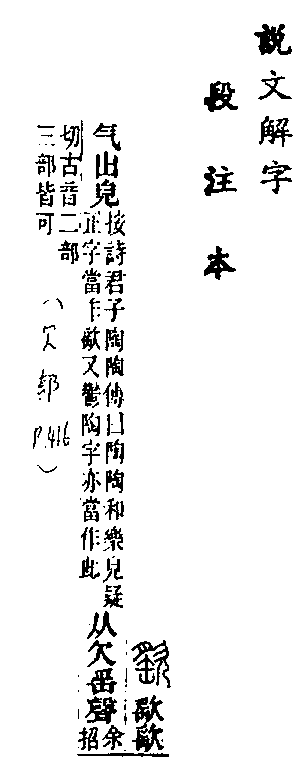 說文解字
段注本
气出皃
按詩君子陶陶傳曰陶陶和樂皃疑
正字當作又鬱陶字亦當作此
从欠聲
余招
切古音二部
三部皆可
(欠部 P.416)